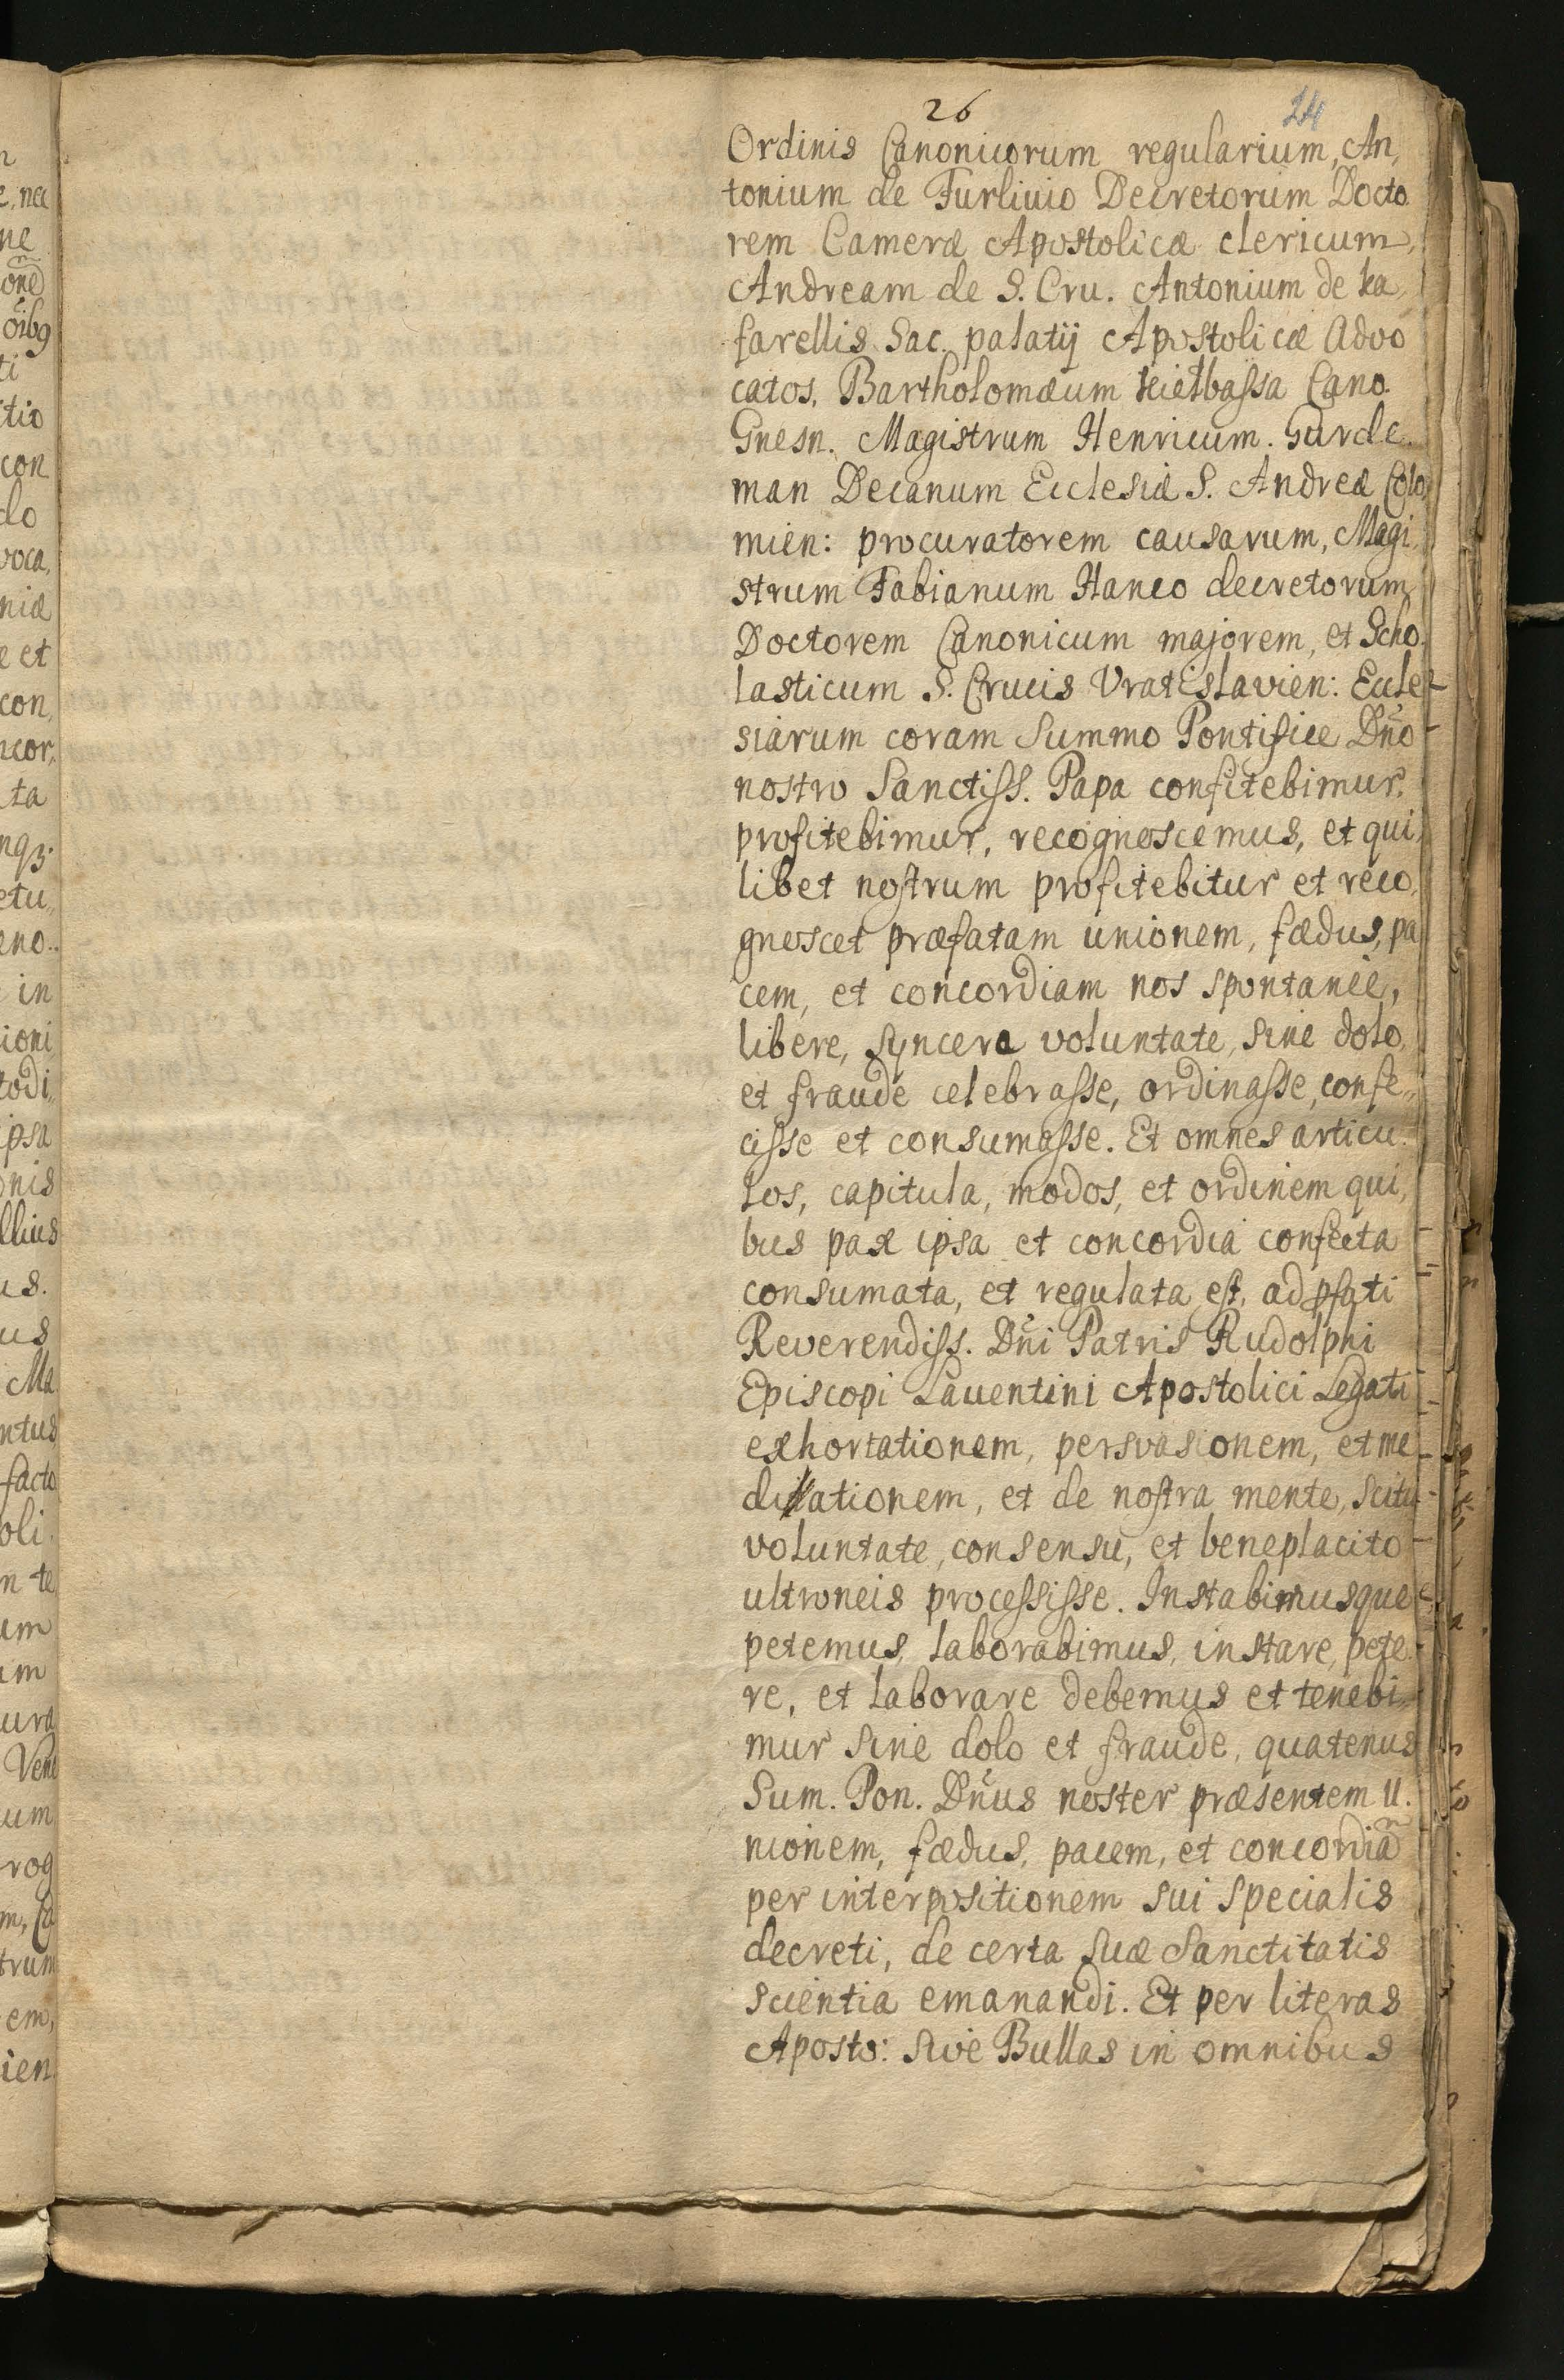 26
24
Ordinis Canonicorum regularium, An,
tonium de Furlivio Decretorum Docto
rem Cameræ Apostolicæ clericum,
Andream de S. Cru. Antonium de ka,
farellis Sac. palatij Apostolicæ Advo
catos, Bartholomæum Kietbassa Cano.
Gnesn. Magistrum Henricum. Gurde.
man Decanum Ecclesiæ S. Andreæ Colo,
mien: procuratorem causarum, Magi,
strum Fabianum Hanco decretorum
Doctorem Canonicum majorem, et Scho.
lasticum S. Crucis Vratislavien: Eccle
siarum coram Summo Pontifice Dño
nostro Sanctiss. Papa confitebimur,
profitebimur, recognoscemus, et qui,
libet nostrum profitebitur et reco,
gnoscet præfatam unionem, fœdus, pa
cem, et concordiam nos spontanée,
libere, syncera voluntate, sine dolo,
et fraude celebrasse, ordinasse, confe,,
cisse et consumasse. Et omnes articu.
los, capitula, modos, et ordinem qui,
bus pax ipsa et concordia confecta
consumata, et regulata est, ad pfati
Reverendiss. Dñi Patris Rudolphi
Episcopi Laventini Apostolici Legati
exhortationem, persvasionem, et me
diationem, et de nostra mente, scitu
voluntate, consensu, et beneplacito
ultroneis processisse. Instabimusque
petemus, laborabimus, instare, pete.
re, et laborare debemus et tenebi,,
mur sine dolo et fraude, quatenus
Sum. Pon. Dñus noster præsentem U.
nionem, fœdus, pacem, et concordiã
per interpositionem sui specialis
decreti, de certa suæ Sanctitatis
scientia emanandi. Et per literas
Aposto: sive Bullas in omnibus